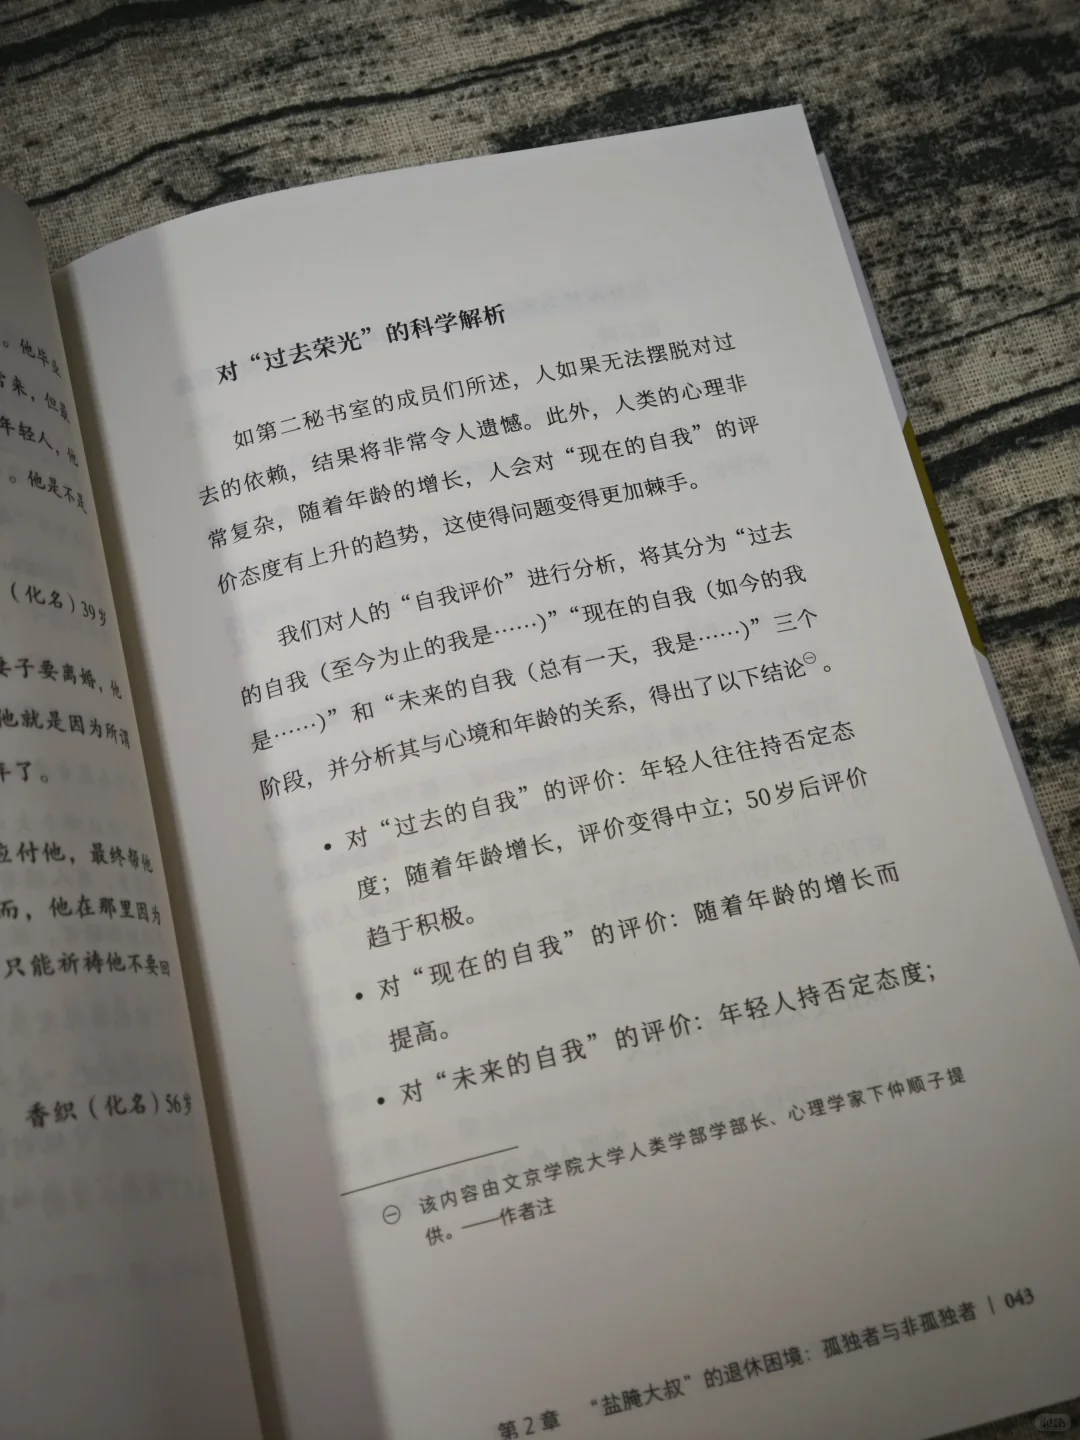 。他毕业
常来，但最
年轻人，他
。他是不是
（化名）39岁
妻子要离婚，他
他就是因为所谓
年了。
应付他，最终帮他
而，他在那里因为
只能祈祷他不要回
香织（化名）56岁
对“过去荣光”的科学解析
如第二秘书室的成员们所述，人如果无法摆脱对过
去的依赖，结果将非常令人遗憾。此外，人类的心理非
常复杂，随着年龄的增长，人会对“现在的自我”的评
价态度有上升的趋势，这使得问题变得更加棘手。
我们对人的“自我评价”进行分析，将其分为“过去
的自我（至今为止的我是……）”“现在的自我（如今的我
是……）”和“未来的自我（总有一天，我是……）”三个
阶段，并分析其与心境和年龄的关系，得出了以下结论㊀。
• 对“过去的自我”的评价：年轻人往往持否定态
度；随着年龄增长，评价变得中立；50岁后评价
趋于积极。
• 对“现在的自我”的评价：随着年龄的增长而
提高。
• 对“未来的自我”的评价：年轻人持否定态度；
㊀ 该内容由文京学院大学人类学部学部长、心理学家下仲顺子提
供。——作者注
第2章 “盐腌大叔”的退休困境：孤独者与非孤独者 | 043